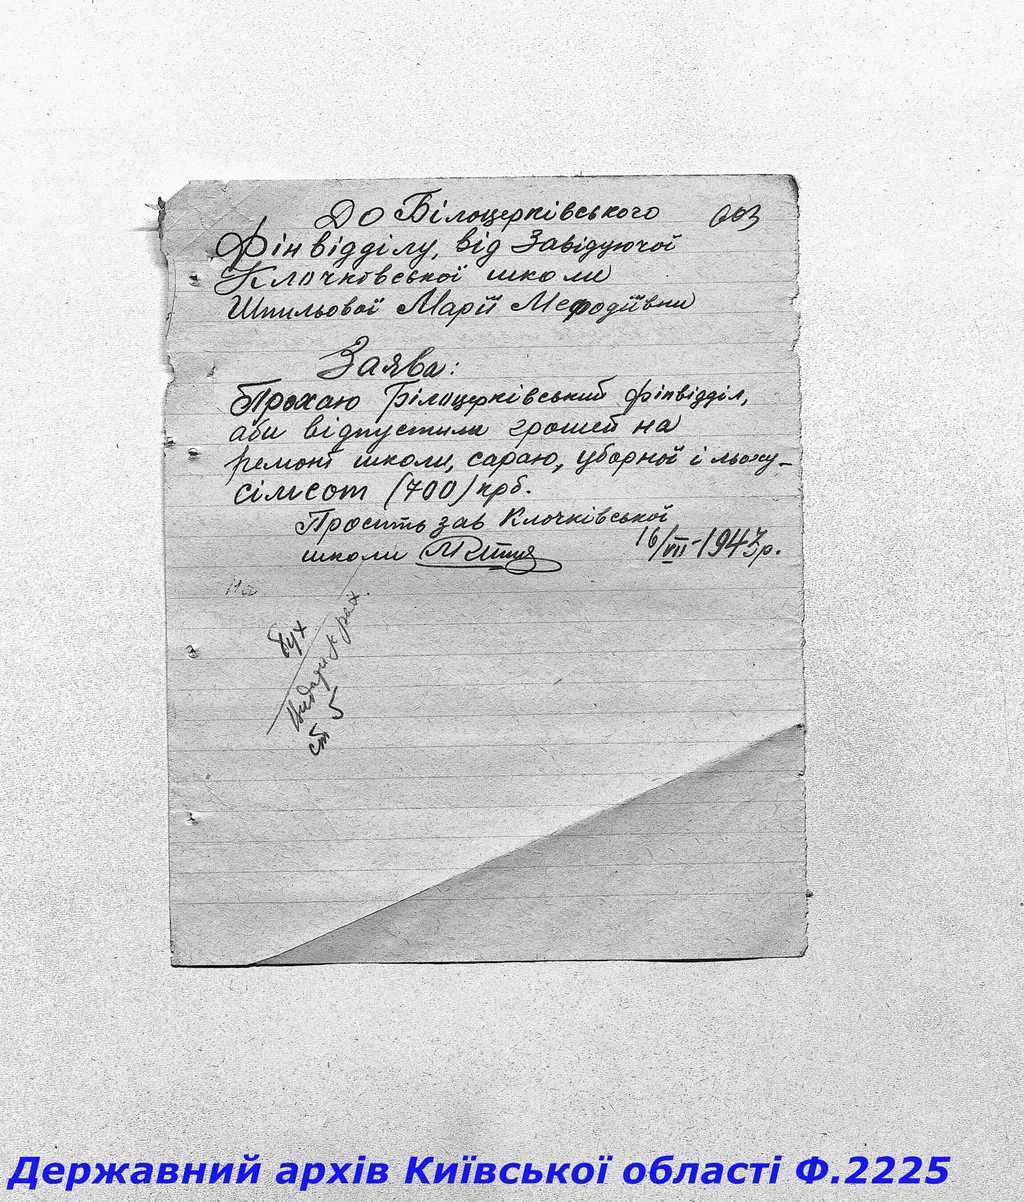 До Білоцерківського
Фін відділу, від Завідуючої
Клочківської школи
Шпильової Марії Мефодіївни
Заява:
Прохаю Білоцерківський фінвідділ,
аби відпустили грошей на
ремонт школи, сараю, уборної і льоху -
сімсот (700) крб.
Просить зав Клочківської
школи
16/VII - 1943 р.
Бух
ст 5
Державний архів Київської області Ф.2225